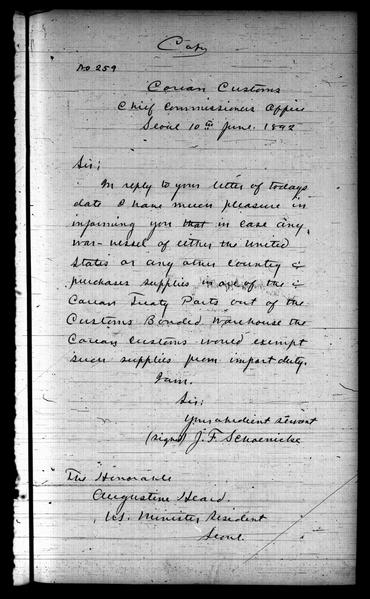 Copy
No 259
Corean Customs
Chief Commissioners Office
Seoul 10th June. 1892
Sir;
In reply to your letter of todays
date I have much pleasure in
informing you that in case any
war-vessel of either the United
States or any other country
purchases supplies in one of the
Corean Treaty Ports out of the
Customs Bonded Warehouse the
Corean Customs would exempt
such supplies from import duty.
I am.
Sir;
Your obedient servant
(signed) J. F. Schoenicke
The Honorable
Augustine Heard.
U.S. Minister Resident
Seoul.